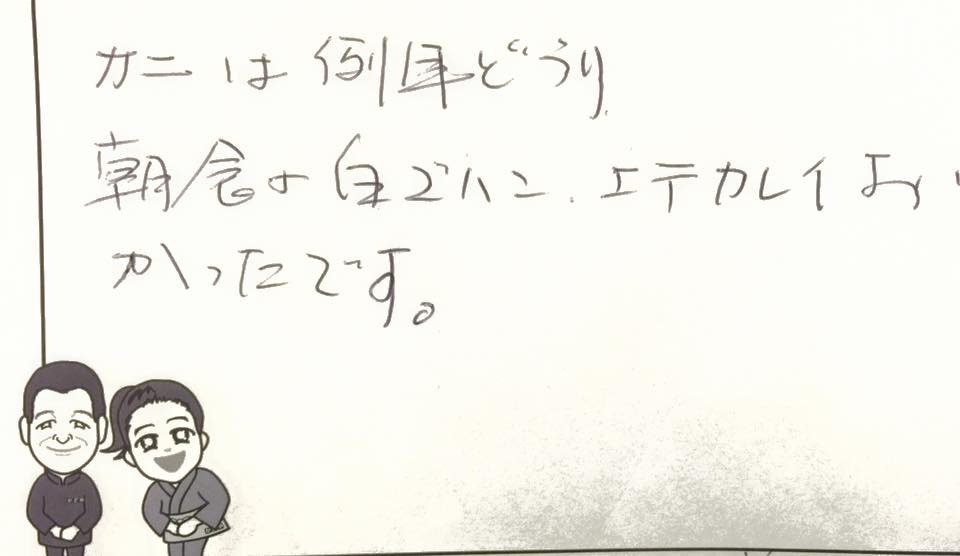 カニは例年どうり
朝食の白ゴハン、エテカレイおい
かったです。